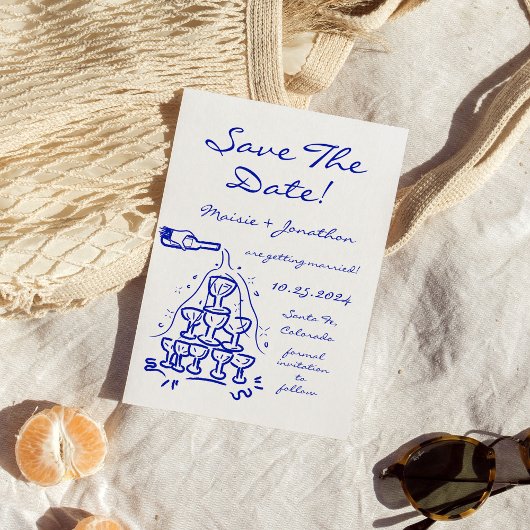 Save The
Date!
Maisie + Jonathon
are getting married!
10.25.2024
Santa Fe,
Colorado
formal
invitation
to
follow
Ray-Ban